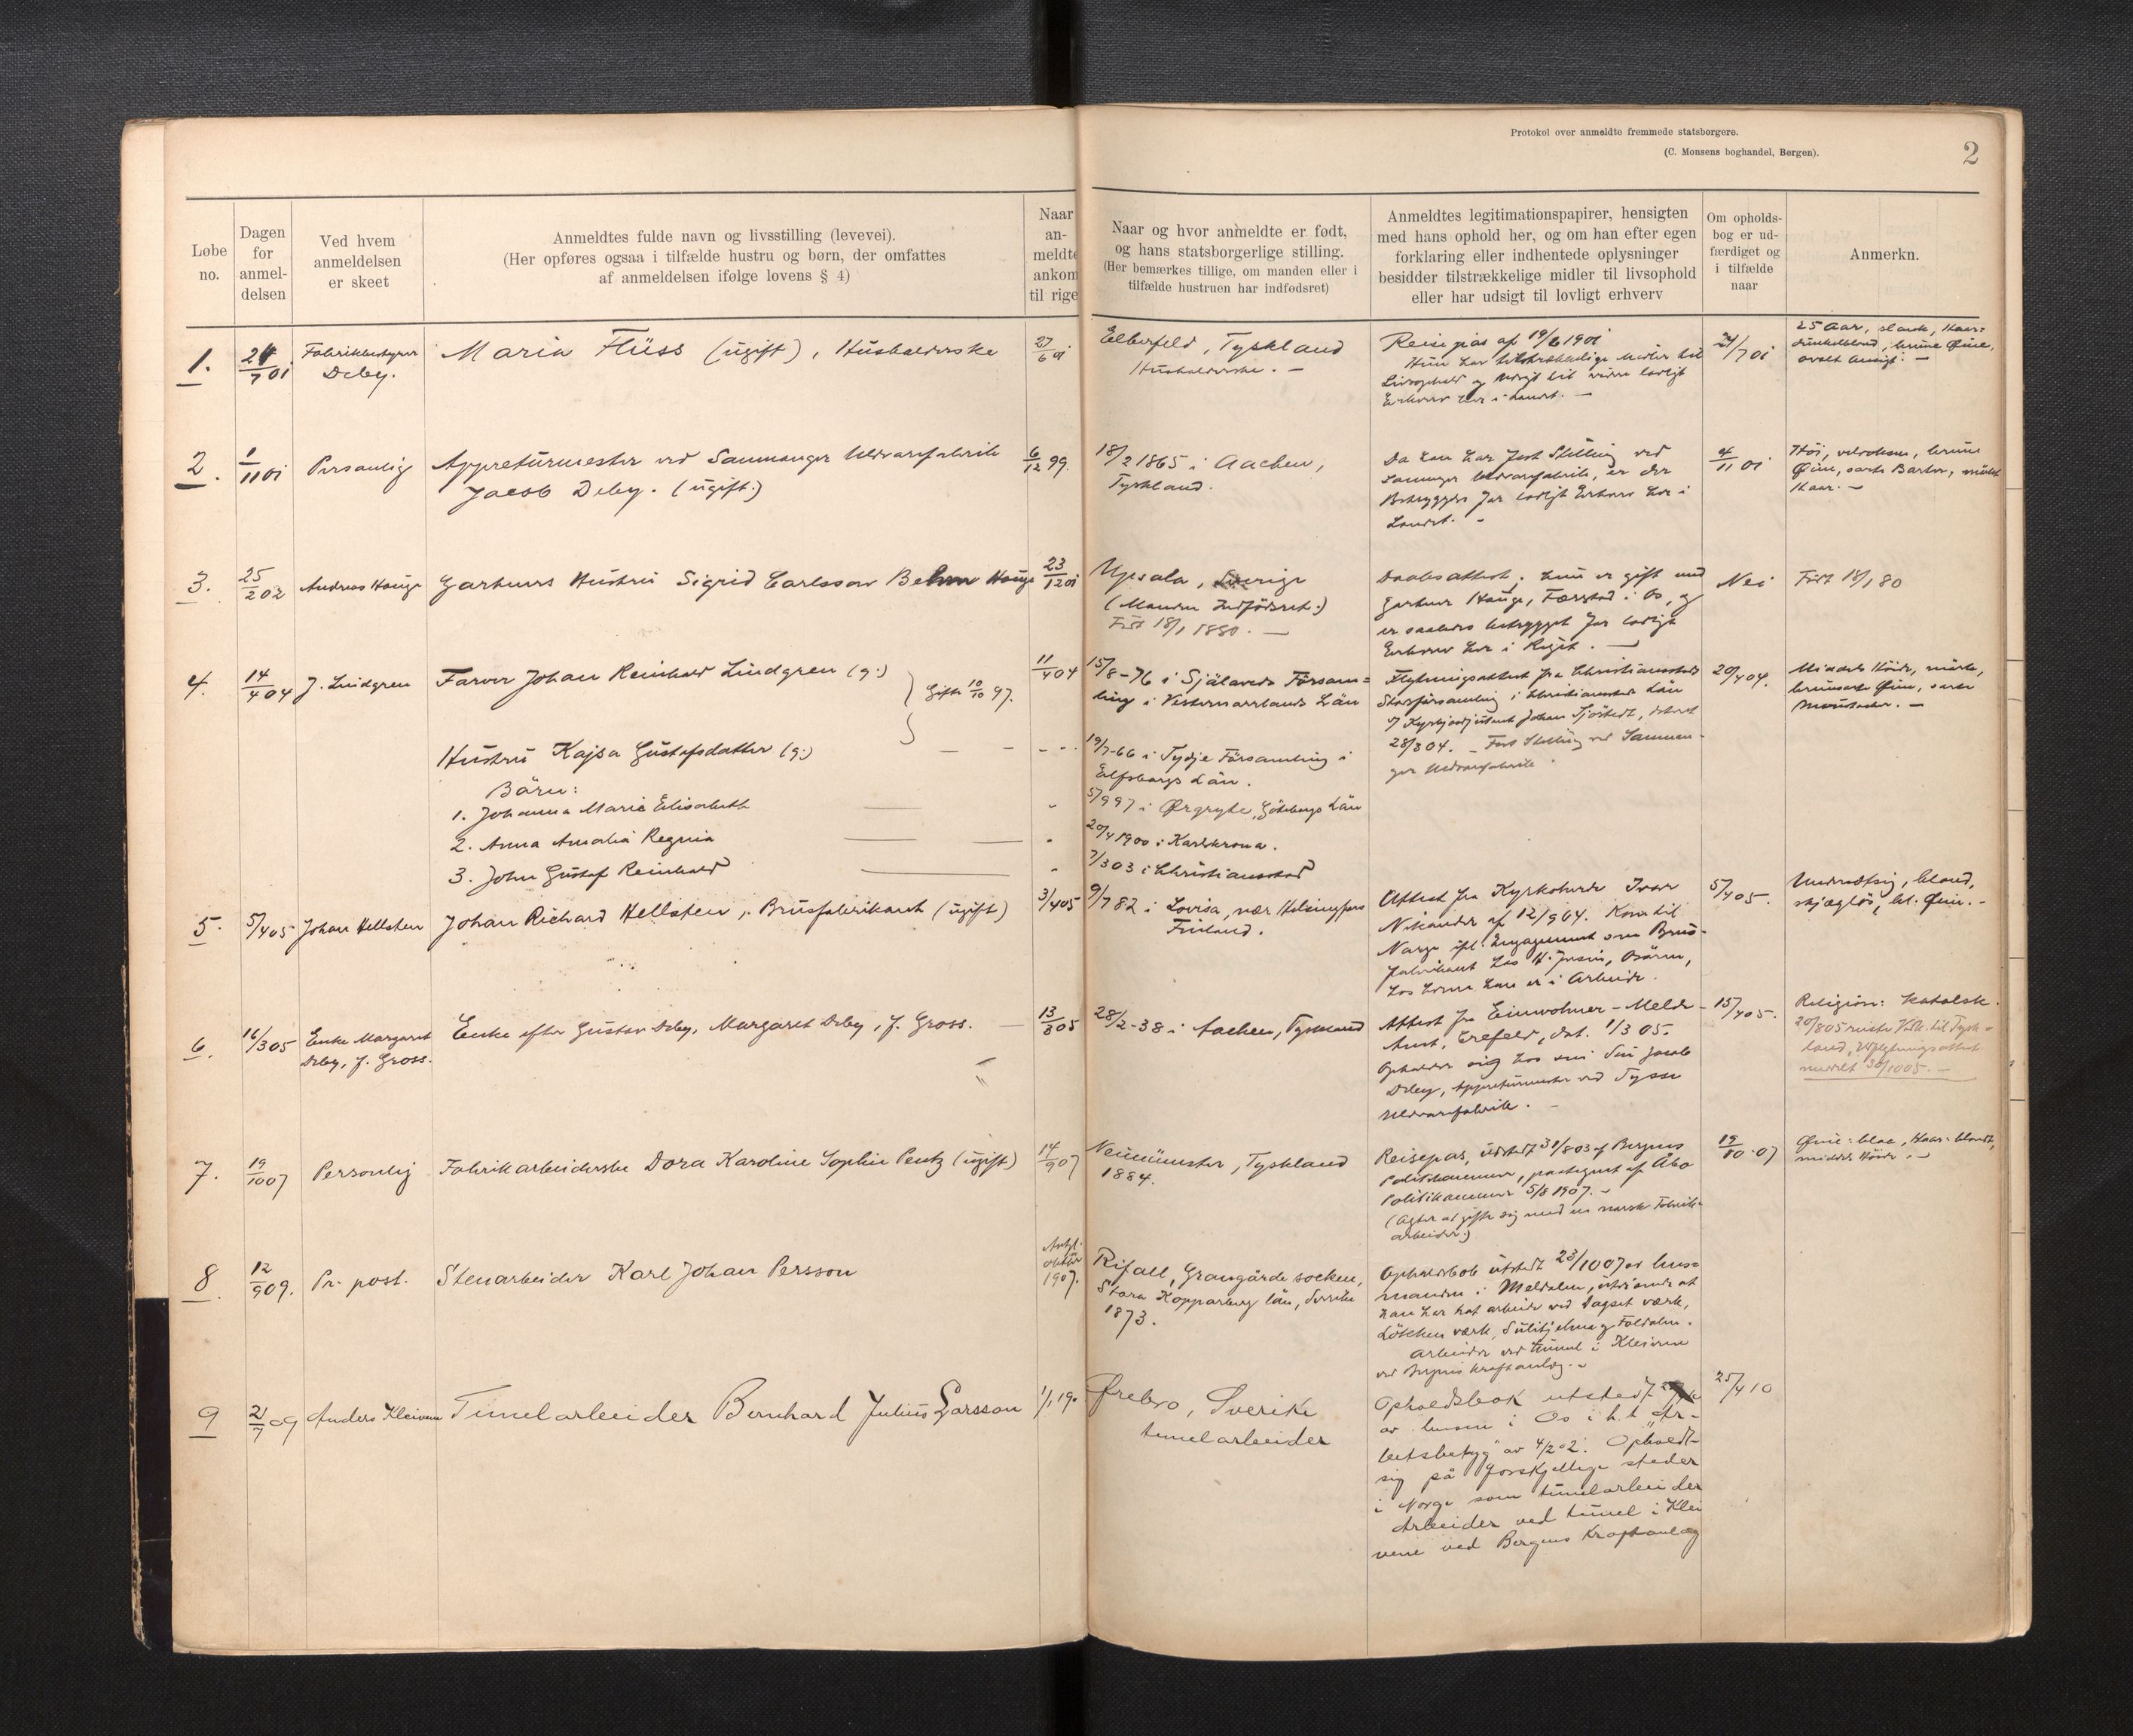 Protokol over anmeldte fremmede statsborgere.
(C. Monsens boghandel, Bergen).
2
Løbe no.
Dagen for anmel- delsen
Ved hvem anmeldelsen er skeet
Anmeldtes fulde navn og livsstilling (levevei).
(Her opføres ogsaa i tilfælde hustru og børn, der omfattes
af anmeldelsen ifølge lovens § 4)
Naar an- meldte ankom til rige
Naar og hvor anmeldte er født,
og hans statsborgerlige stilling.
(Her bemærkes tillige, om manden eller i
tilfælde hustruen har indfødsret)
Anmeldtes legitimationspapirer, hensigten
med hans ophold her, og om han efter egen
forklaring eller indhentede oplysninger
besidder tilstrækkelige midler til livsophold
eller har udsigt til lovligt erhverv
Om opholds-
bog er ud-
færdiget og
i tilfælde
naar
Anmerkn.
1.
Fabrikbestyrer
Deby.
Maria Flüss (ugift), Husholderske
27/6 01
Elberfeld, Tyskland
Husholderske. —
Reisepas af 19/6 1901
Hun har tilstrækkelige Midler til
Livsophold og Udsigt til videre lovligt
Erhverv her i Landet. —
24/7 01
25 Aar, slank, Haar:
dunkelblond, brune Øine,
ovalt Ansigt. —
2.
1/11 01
Personlig
Appreturmester ved Samnanger Uldvarefabrik
Jacob Deby. (ugift.)
6/12 99.
18/2 1865 i Aachen,
Tyskland.
Da han har fast Stilling ved
Samnanger Uldvarefabrik, er der
Betryggelse for lovligt Erhverv her i
Landet. -
4/11 01
Høi, velvoksen, brune
Øine, sorte Barter, mørkt
Haar. —
3.
25/2 02
Andreas Hauge
Gartners Hustru Sigrid Carlsson Behm Hauge
23/12 01
Upsala, Sverige
(Manden Indfødsret.)
Født 18/1 1880. —
Daabsattest; hun er gift med
Gartner Hauge, Færstad i Os, og
er saaledes betrygget for lovligt
Erhverv her i Riget. —
Nei
Født 18/1 80
4.
14/4 04
J. Lindgren
Farver Johan Reinhold Lindgren (g.)
Gifte 10/10 97.
11/4 04
15/8-76 i Själevads Försam=
ling i Vesternorrlands Län
Flytningsattest fra Christianstads
Stadsförsamling i Christianstads Län
v/ Kyrkoadjutant Johan Sjöstedt, dateret
28/3 04. - Fast Stilling ved Samnan-
ger Uldvarefabrik.
20/4 04.
Middels Høide, mørk,
brunsorte Øine, sorte
Moustacher. —
Hustru Kajsa Gustafsdatter (g.)
19/7-66 i Tydje Församling i
Elfsborgs Län.
Børn:
1. Johanna Maria Elisabeth
5/9 97 i Ørgryte, Göteborgs Län
2. Anna Amalia Regina
20/4 1900 i Karlskrona.
3. John Gustaf Reinhold
7/3 03 i Christianstad
5.
5/4 05
Johan Hellsten
Johan Richard Hellsten, Brusfabrikant (ugift)
3/4 05
9/7 82 i Lovisa, nær Helsingfors
Finland.
Attest fra Kyrkoherde Ivar
Nikander af 12/9 04. Kom til
Norge ifl. Engagement som Brus-
fabrikant hos H. Jusin, Osøren,
hos hvem han er i Arbeide.
5/4 05.
Undersætsig, blond,
skjægløs, bl. Øine. -
6.
16/3 05
Enke Margaret
Deby, f. Gross.
Enke efter Gustav Deby, Margaret Deby, f. Gross.
13/3 05
28/2-38 i Aachen, Tyskland
Attest fra Einwohner-Melde-
Amt, Crefeld, dat. 1/3 05.
Opholder sig hos sin Søn Jacob
Deby, Appreturmester ved Tysse
Uldvarefabrik. -
15/4 05.
Religion: Katolsk.
20/8 05 reiste Vedk. til Tysk-
land, Udflytningsattest
meddelt 30/10 05. —
7.
19/10 07
Personlig
Fabrikarbeiderske Dora Karoline Sophie Pentz (ugift)
14/9 07
Neumünster, Tyskland
1884.
Reisepas, udstedt 31/8 03 af Bergens
Politikammer, paategnet af Åbo
Politikammer 5/8 1907. -
(Agter at gifte sig med en norsk Fabrik-
arbeider.)
19/10 07
Øine: blaa, Haar: blondt,
middels Høide. -
8.
12/9 09.
Pr. post.
Stenarbeider Karl Johan Persson
oktbr
1907.
Rifall, Grangärde socken,
Stora Kopparberg län, Sverike
1873.
Opholdsbok utstedt 23/10 07 av lens-
manden i Meldalen, utvisende at
han har hat arbeide ved Dagset værk,
Løkken værk, Sulitjelma og Foldalen.
Arbeider ved tunnel i Kleivene
ved Bergens kraftanlæg. -
9
21/7 09
Anders Kleivene
Tunelarbeider Bernhard Julius Larsson
1/1 190
Ørebro, Sverike
tunelarbeider
Opholdsbok utstedt
av lensm i Os i h.t. „Ar-
betsbetyg" av 4/2 02. Opholdt
sig på forskjellige steder
i Norge som tunelarbeider
Arbeider ved tunel i Klei
vene ved Bergens Kraftanlæg
25/4 10